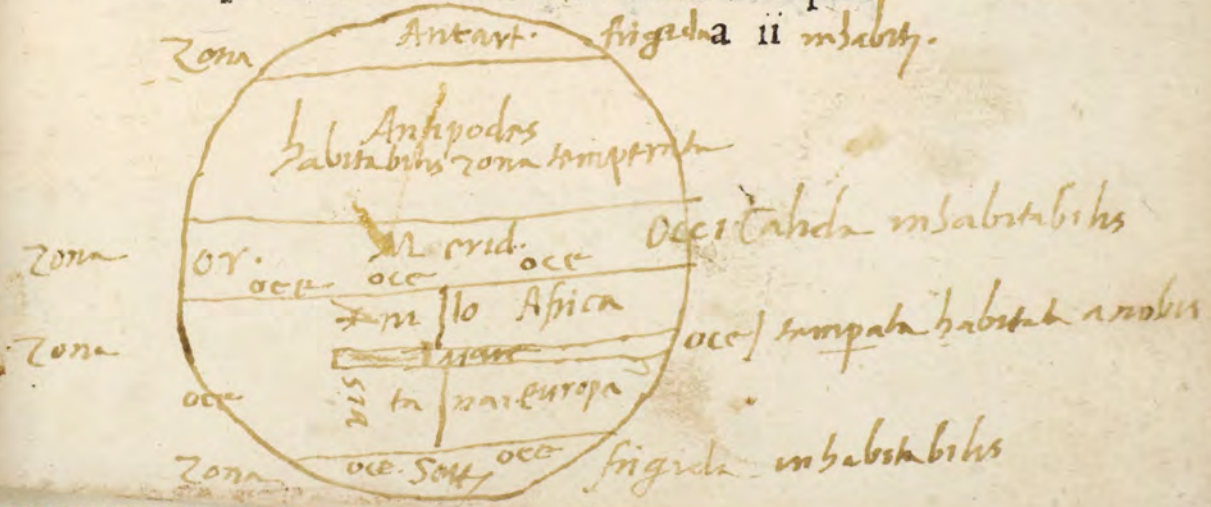 Zona Antart. frigida a ii inhabit.
Antipodes
habitabilis zona temperata
Zona or. Merid. Occi Calida inhabitabilis
oce oce oce
nilo Africa
Zona mare oce temperata habitata a nobis
oce ta nai europa
Zona oce. Sett oce frigida inhabitabilis